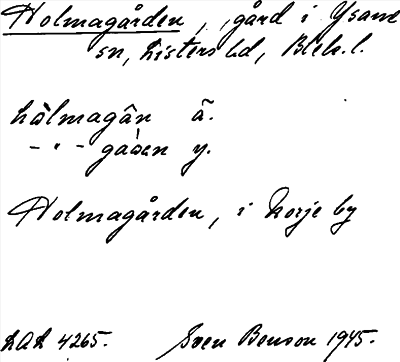 Holmagården, gård i Ysane
sn, Listers hd, Blek. l.
hålmagån ä.
- " - gaden y.
Holmagården, i Norje by
LAL 4265. Sven Benson 1945.